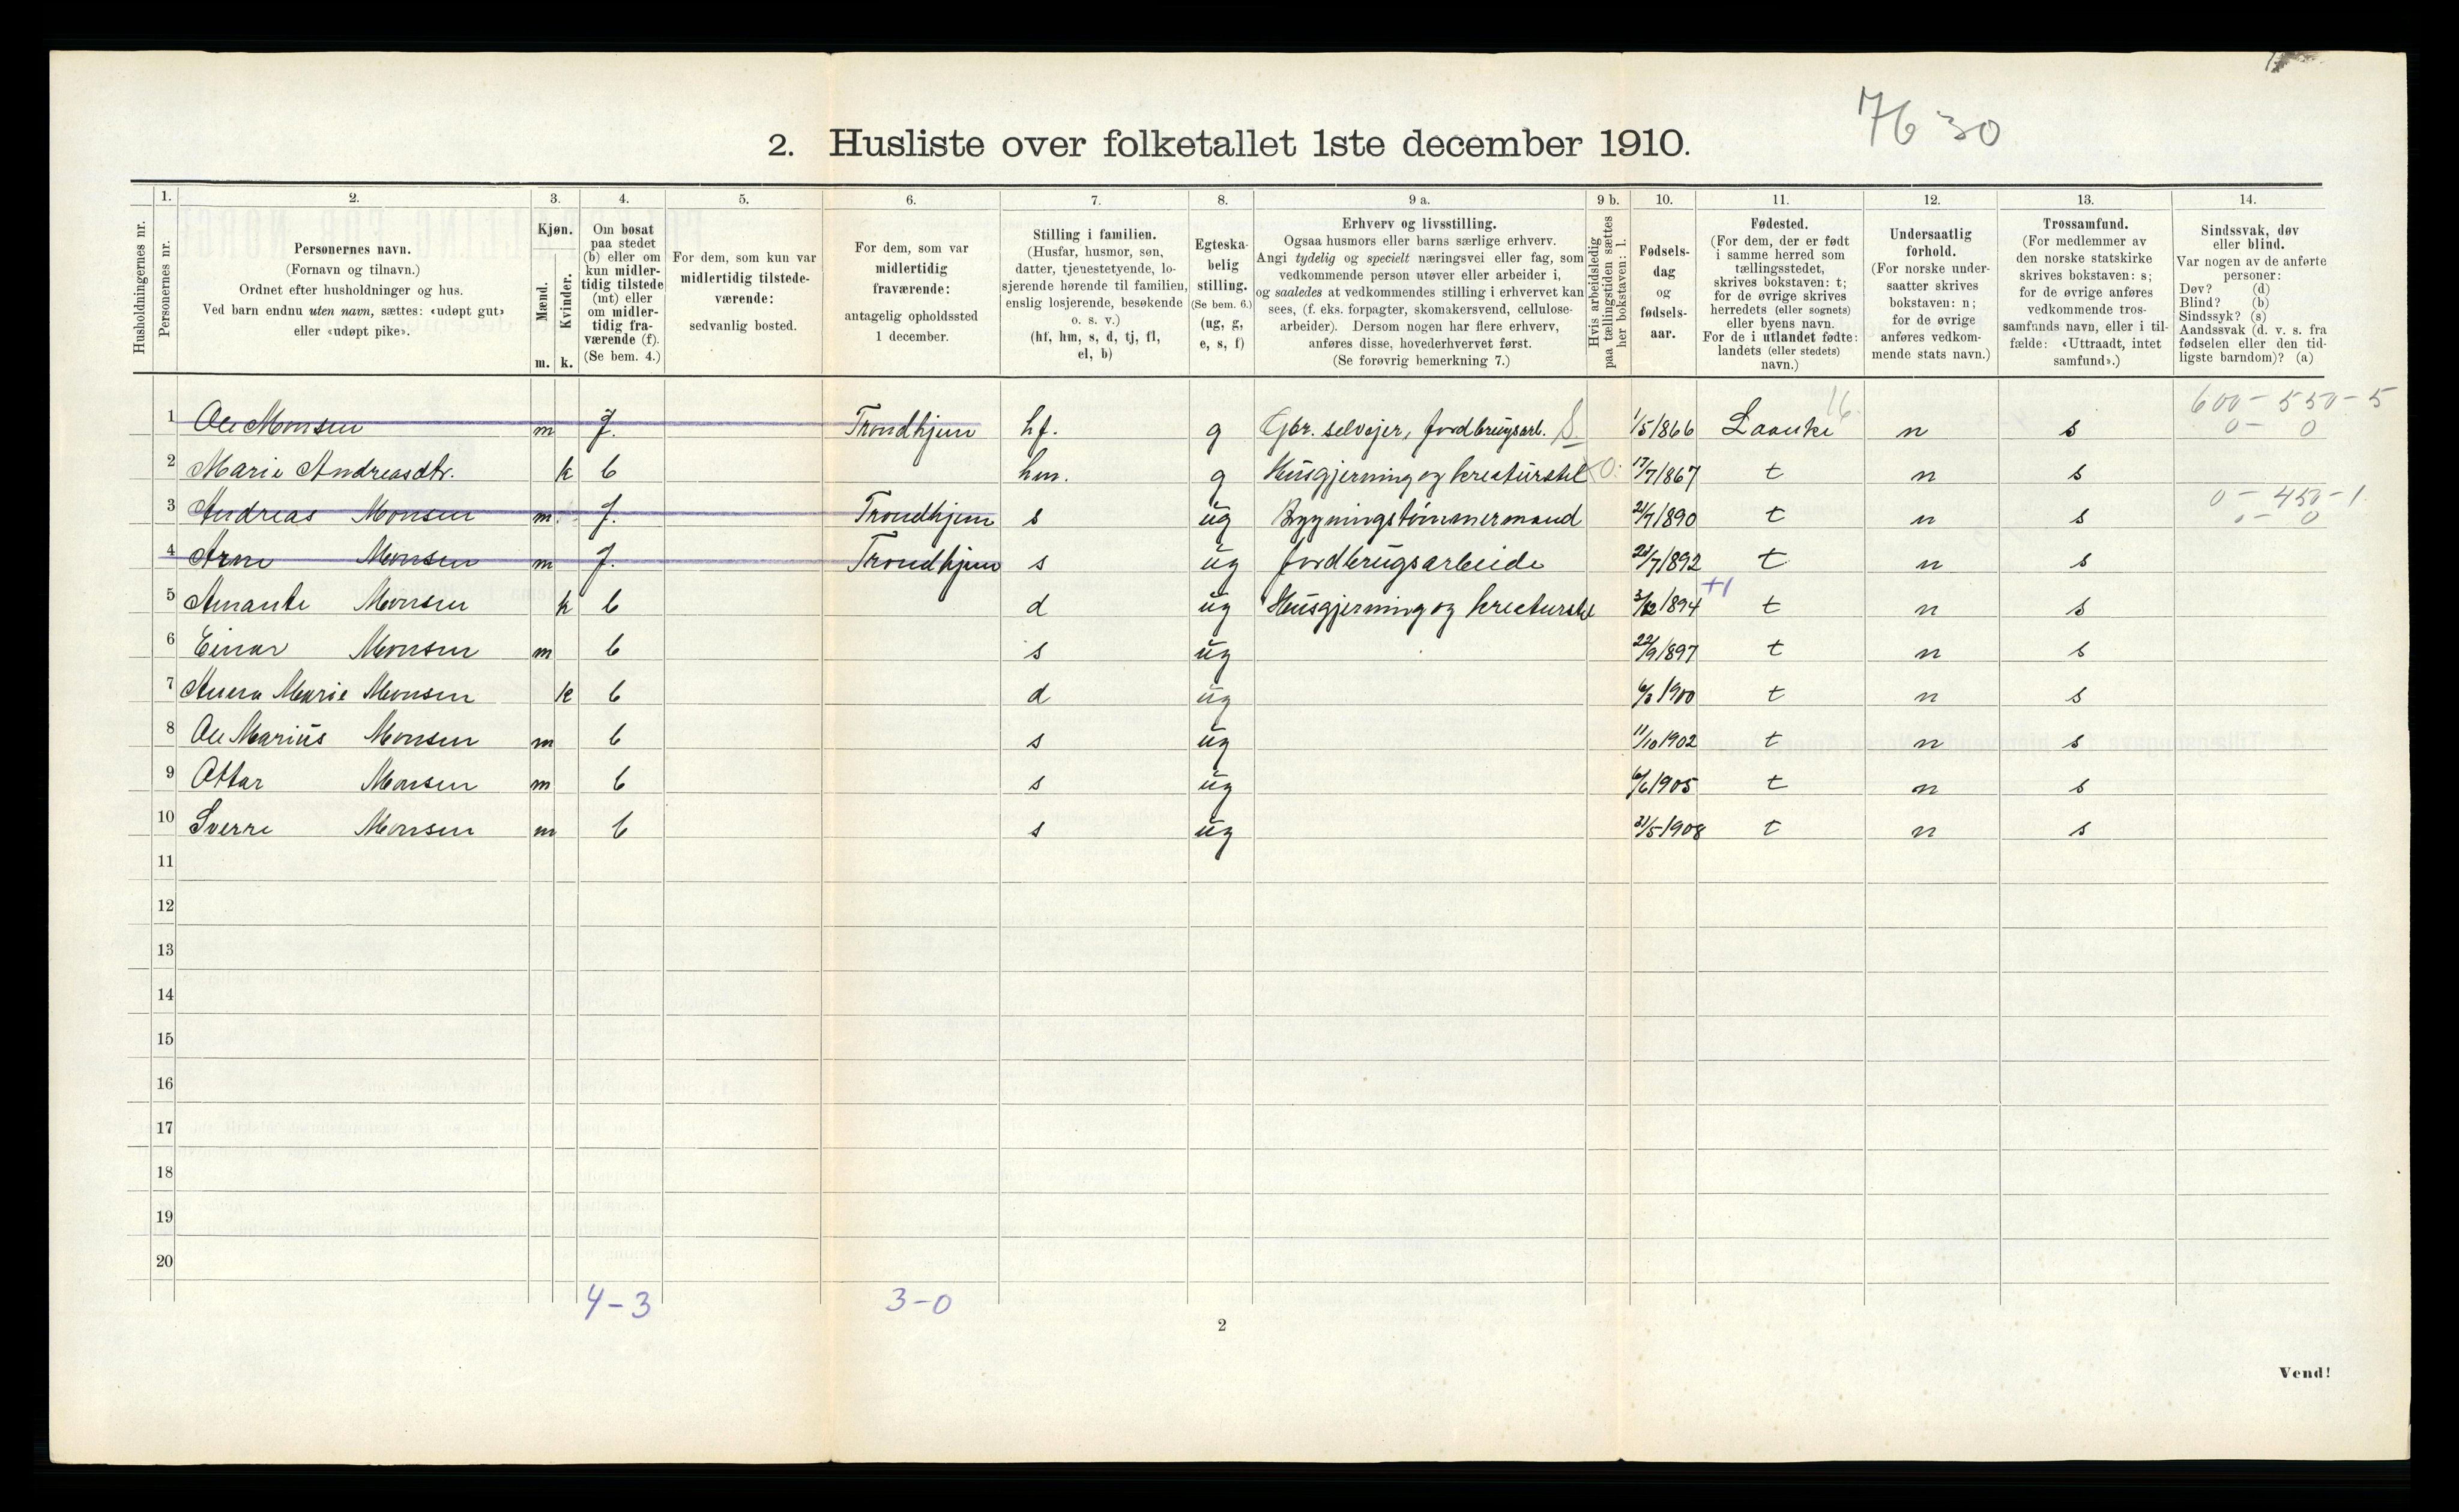 76 30
2. Husliste over folketallet 1ste december 1910.
Husholdningernes nr.
1. Personernes nr.
2. Personernes navn.
(Fornavn og tilnavn.)
Ordnet efter husholdninger og hus.
Ved barn endnu uten navn, sættes: «udøpt gut»
eller «udøpt pike».
3. Kjøn.
Mænd. m.
Kvinder. k.
4. Om bosat
paa stedet
(b) eller om
kun midler-
tidig tilstede
(mt) eller
om midler-
tidig fra-
værende (f).
(Se bem. 4.)
5. For dem, som kun var
midlertidig tilstede-
værende:
sedvanlig bosted.
6. For dem, som var
midlertidig
fraværende:
antagelig opholdssted
1 december.
7. Stilling i familien.
(Husfar, husmor, søn,
datter, tjenestetyende, lo-
sjerende hørende til familien,
enslig losjerende, besøkende
o. s. v.)
(hf, hm, s, d, tj, fl,
el, b)
8. Egteska-
belig
stilling.
(Se bem. 6.)
(ug, g,
e, s, f)
9 a. Erhverv og livsstilling.
Ogsaa husmors eller barns særlige erhverv.
Angi tydelig og specielt næringsvei eller fag, som
vedkommende person utøver eller arbeider i,
og saaledes at vedkommendes stilling i erhvervet kan
sees, (f. eks. forpagter, skomakersvend, cellulose-
arbeider). Dersom nogen har flere erhverv,
anføres disse, hovederhvervet først.
(Se forøvrig bemerkning 7.)
9 b. Hvis arbeidsledig
paa tællingstiden sættes
her bokstaven: l.
10. Fødsels-
dag
og
fødsels-
aar.
11. Fødested.
(For dem, der er født
i samme herred som
tællingsstedet,
skrives bokstaven: t;
for de øvrige skrives
herredets (eller sognets)
eller byens navn.
For de i utlandet fødte:
landets (eller stedets)
navn.)
12. Undersaatlig
forhold.
(For norske under-
saatter skrives
bokstaven: n;
for de øvrige
anføres vedkom-
mende stats navn.)
13. Trossamfund.
(For medlemmer av
den norske statskirke
skrives bokstaven: s;
for de øvrige anføres
vedkommende tros-
samfunds navn, eller i til-
fælde: «Uttraadt, intet
samfund».)
14. Sindssvak, døv
eller blind.
Var nogen av de anførte
personer:
Døv? (d)
Blind? (b)
Sindssyk? (s)
Aandssvak (d. v. s. fra
fødselen eller den tid-
ligste barndom)? (a)
16 600 - 550 - 5
1 Ole Monsen m f. Trondhjem hf. g Gbr. selvejer, jordbrugsarb. S 1/5 1866 Laanke n s 0 - 0
2 Marie Andreasdtr. k b hm. g Husgjerning og kreaturstel 0 17/7 1867 t n s
0 - 450 - 1
3 Andreas Monsen m f. Trondhjem s ug Bygningstømmermand 21/7 1890 t n s 0 - 0
4 Arne Monsen m f. Trondhjem s ug jordbrugsarbeide 23/7 1892 t n s
+1
5 Amante Monsen k b d ug Husgjerning og kreaturstel 3/12 1894 t n s
6 Einar Monsen m b s ug 22/9 1897 t n s
7 Anna Marie Monsen k b d ug 6/3 1900 t n s
8 Ole Marius Monsen m b s ug 11/10 1902 t n s
9 Ottar Monsen m b s ug 6/6 1905 t n s
10 Sverre Monsen m b s ug 31/5 1908 t n s
11
12
13
14
15
16
17
18
19
20
4-3 3-0
2
Vend!